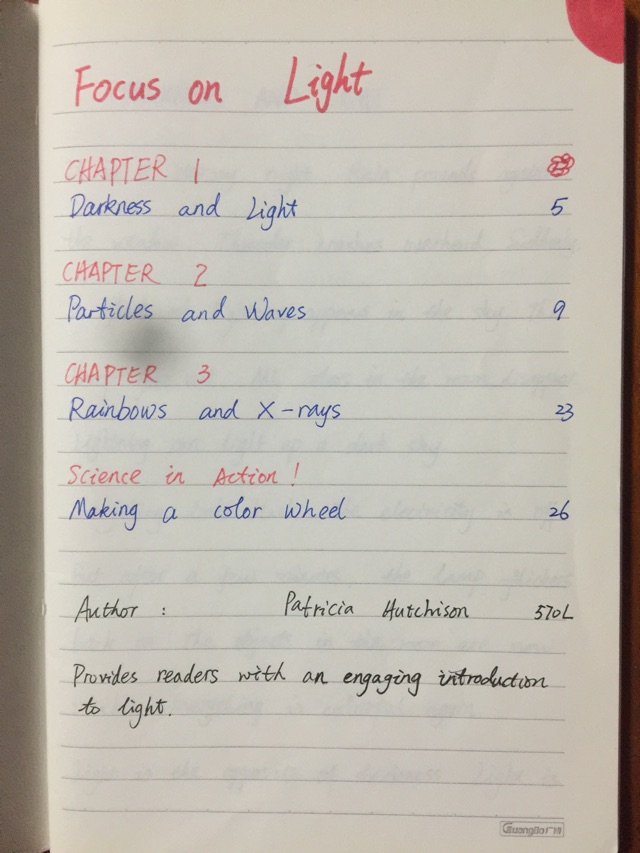 Focus on Light
CHAPTER 1
Darkness and Light 5
CHAPTER 2
Particles and Waves 9
CHAPTER 3
Rainbows and X-rays 23
Science in Action!
Making a color wheel 26
Author : Patricia Hutchison 570L
Provides readers with an engaging introduction
to light.
GuangBo广博